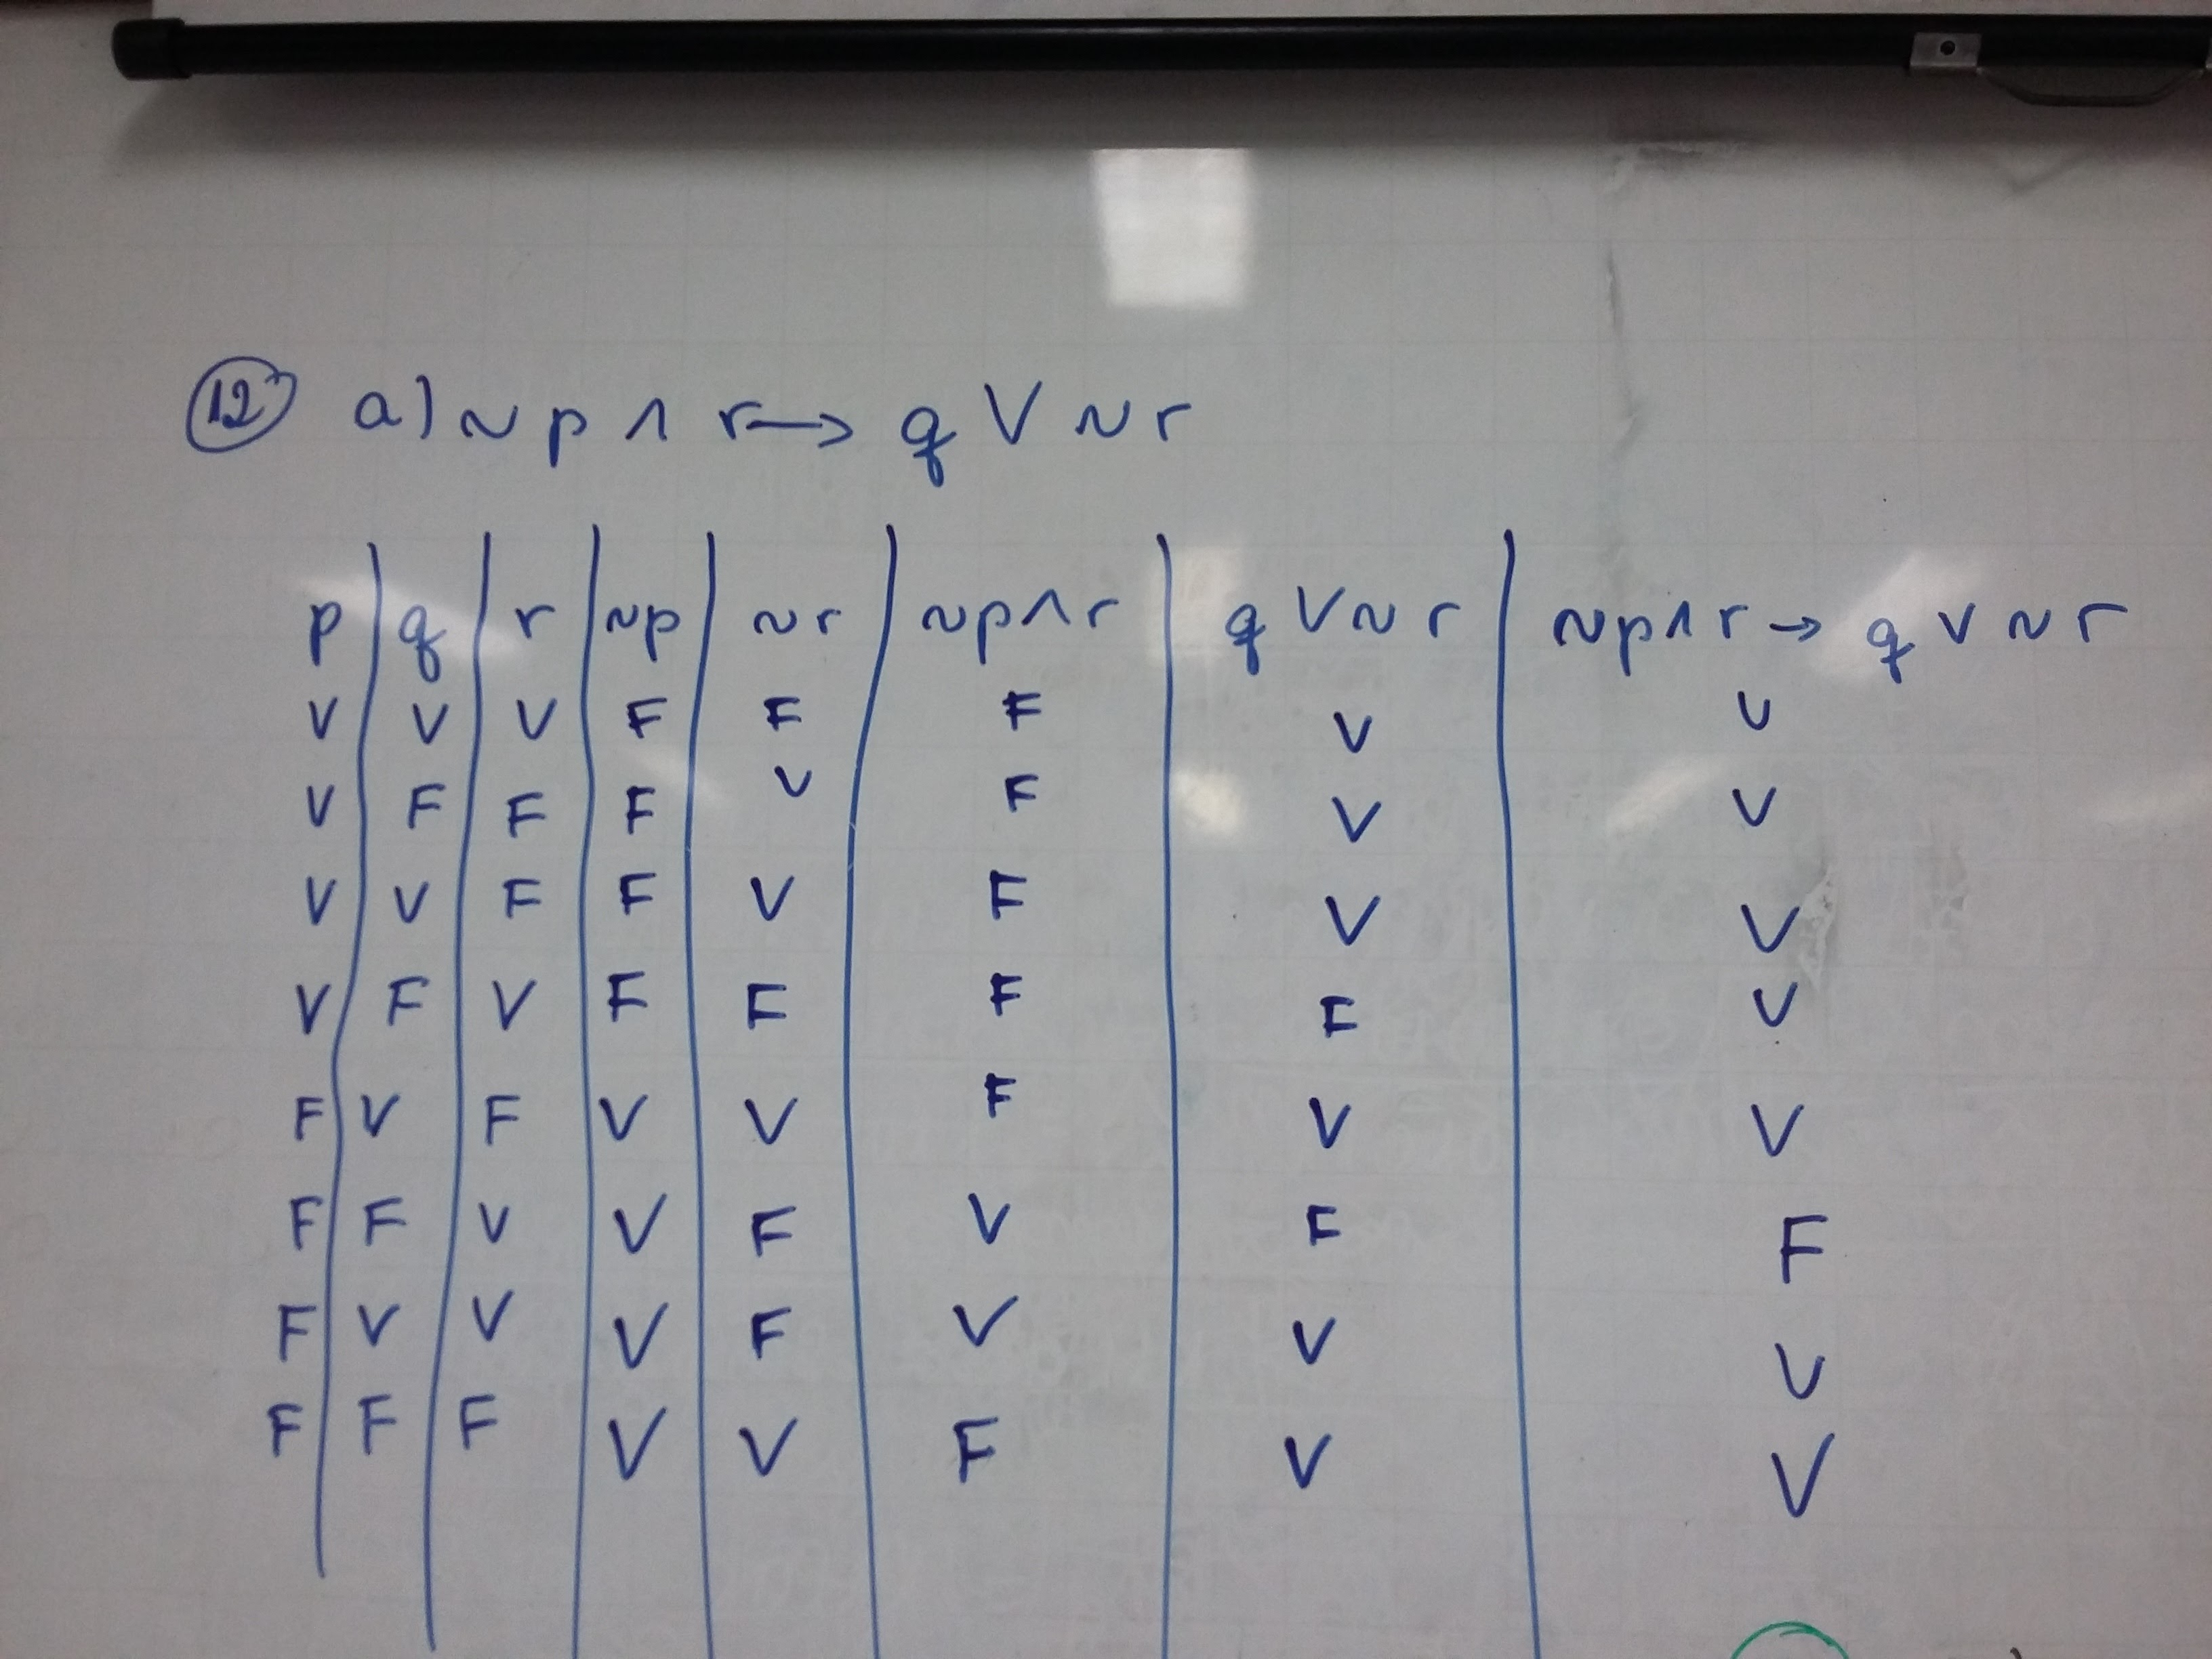 12) a) ~p ∧ r → q V ~r
p | q | r | ~p | ~r | ~p∧r | q V ~r | ~p∧r → q v ~r
V | V | V | F | F | F | V | V
V | F | F | F | V | F | V | V
V | V | F | F | V | F | V | V
V | F | V | F | F | F | F | V
F | V | F | V | V | F | V | V
F | F | V | V | F | V | F | F
F | V | V | V | F | V | V | V
F | F | F | V | V | F | V | V